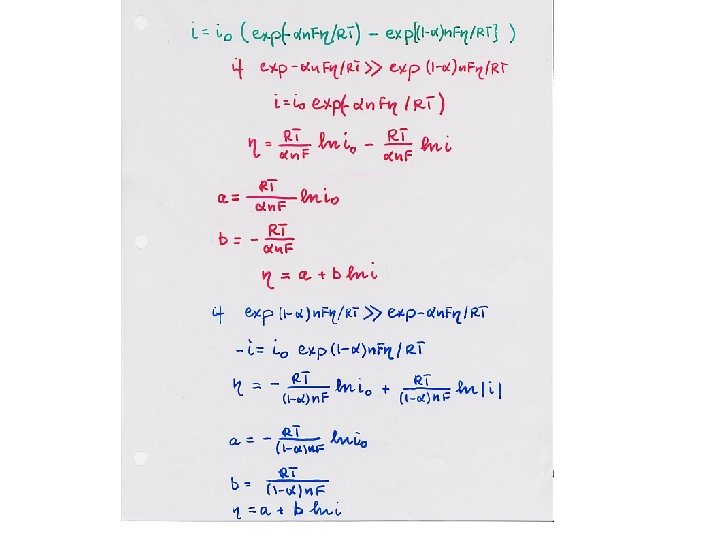 i = i₀ (exp(-αnFη/RT) - exp[(1-α)nFη/RT])
if exp-αnFη/RT >> exp(1-α)nFη/RT
i = i₀ exp(-αnFη/RT)
η = RT/αnF ln i₀ - RT/αnF ln i
a = RT/αnF ln i₀
b = - RT/αnF
η = a + b ln i
if exp(1-α)nFη/RT >> exp-αnFη/RT
-i = i₀ exp(1-α)nFη/RT
η = - RT/(1-α)nF ln i₀ + RT/(1-α)nF ln|i|
a = - RT/(1-α)nF ln i₀
b = RT/(1-α)nF
η = a + b ln i